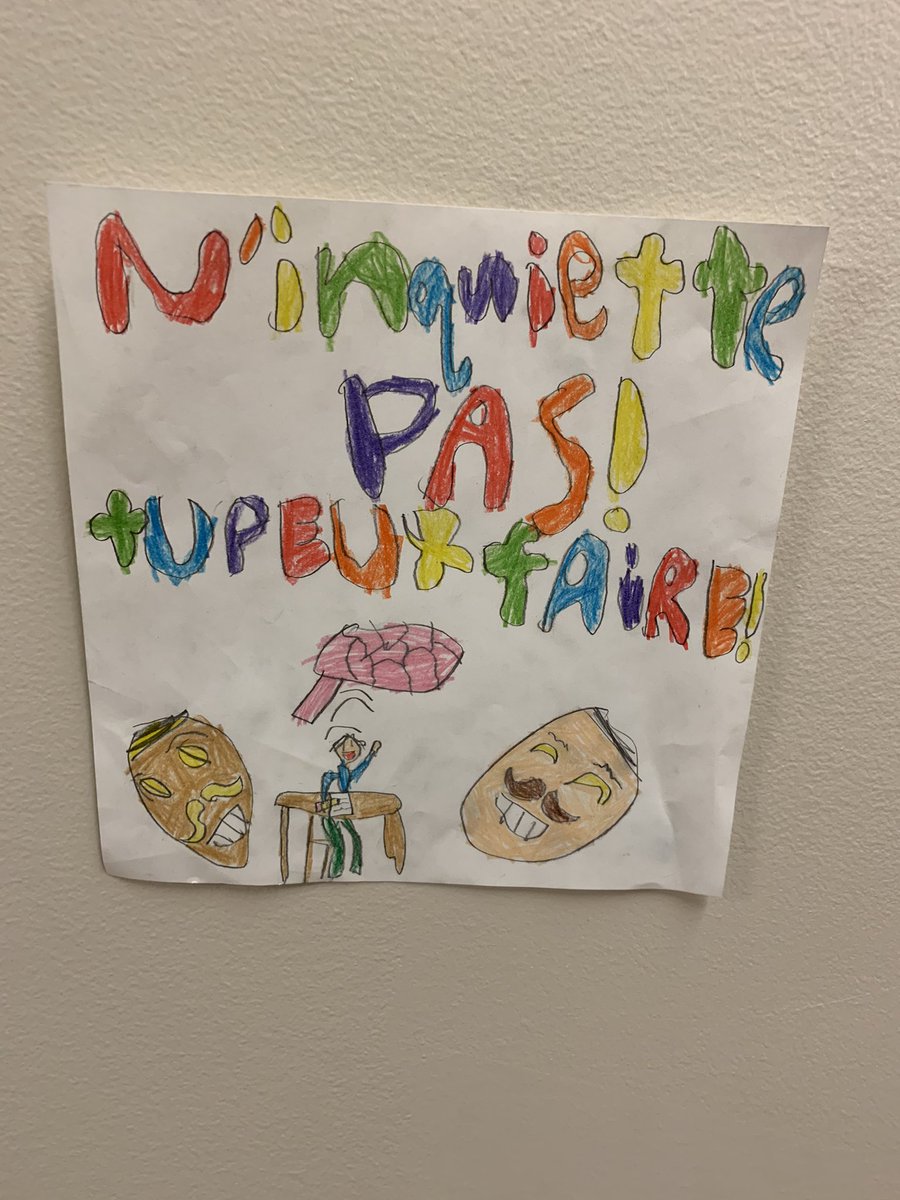 N'inquiette
PAS!
tUPEUX fAiRE!